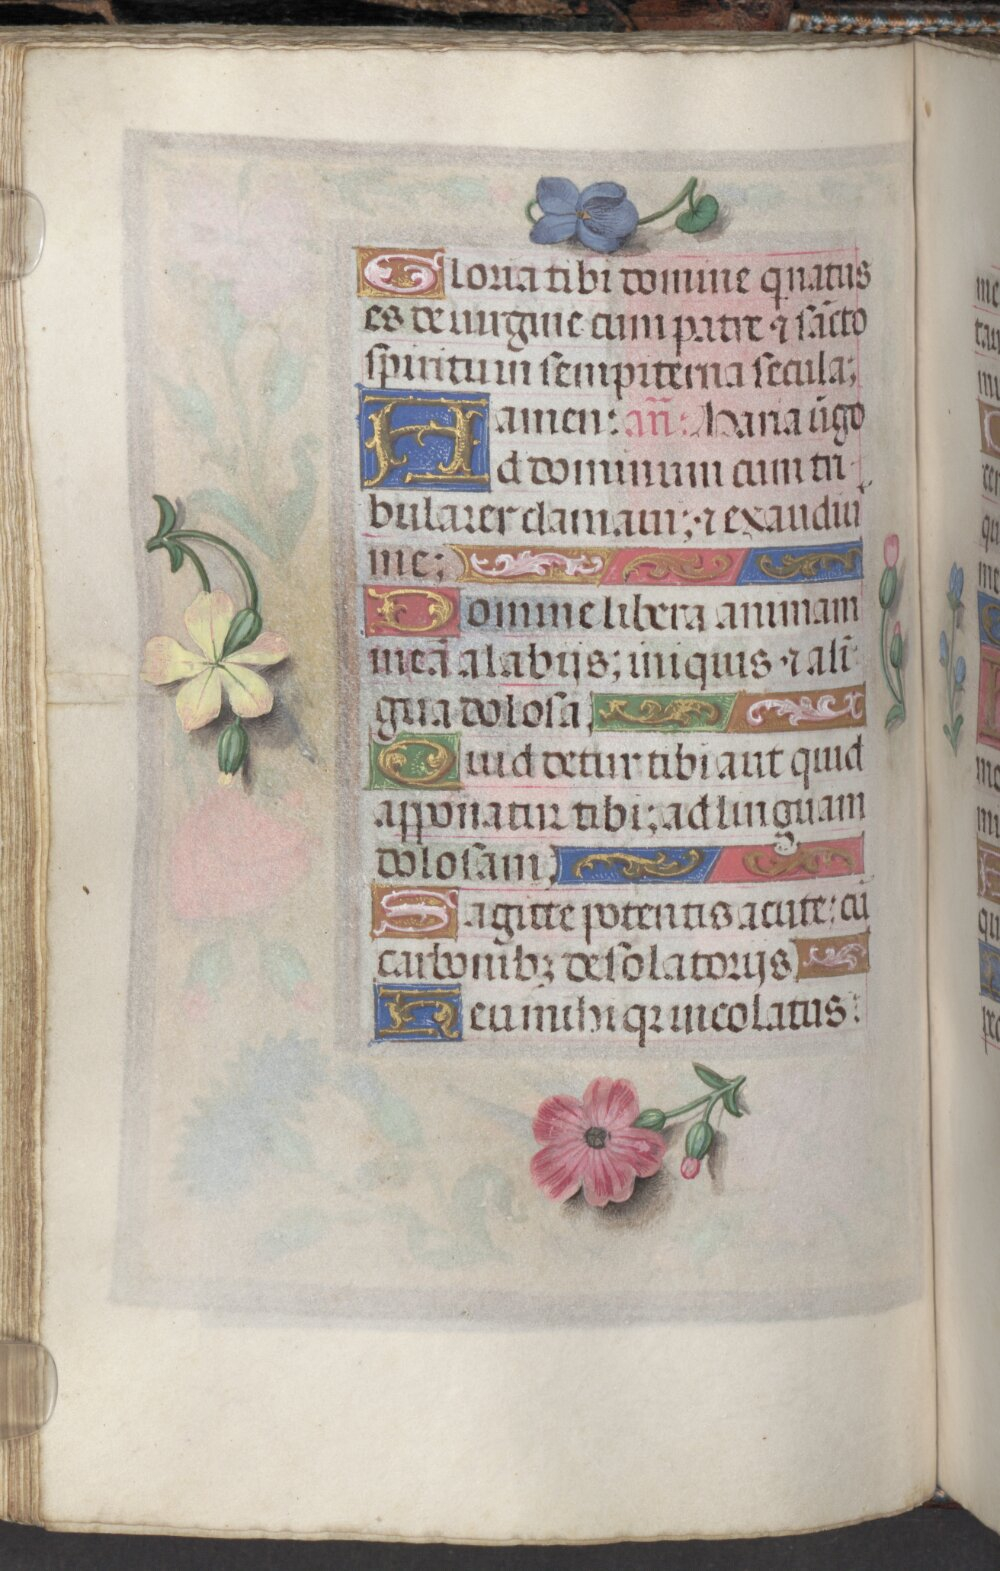 Gloria tibi domine qͥ natus
es de uirgine cum patre ⁊ sācto
spiritu in sempiterna secula;
amen: añ: Maria ūgo
Ad dominum cum tri
bularer clamaui; ⁊ exaudiui
me;
Domine libera animam
meā a labijs; iniquis ⁊ a lī
gua dolosa
Quid detur tibi aut quid
apponatur tibi; ad linguam
dolosam
Sagitte potentis acute: cū
carbonibꝫ desolatorijs
Heu mihi qꝛ incolatus: